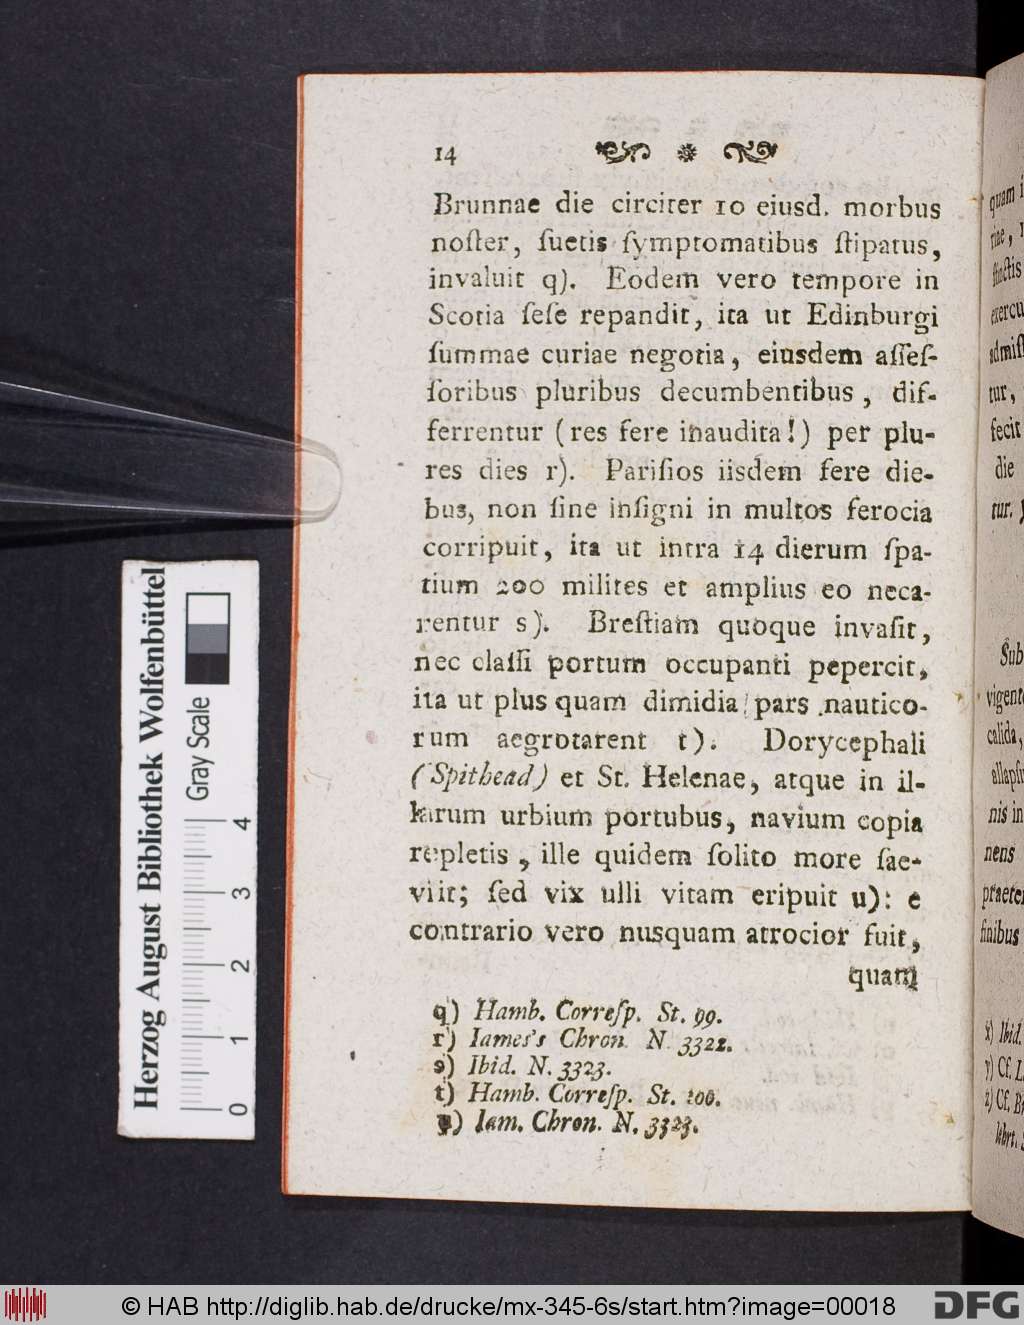 14
Brunnae die circiter 10 eiusd. morbus
noſter, ſuetis ſymptomatibus ſtipatus,
invaluit q). Eodem vero tempore in
Scotia ſeſe repandit, ita ut Edinburgi
ſummae curiae negotia, eiusdem aſſeſ-
ſoribus pluribus decumbentibus, dif-
ferrentur (res fere inaudita!) per plu-
res dies r). Pariſios iisdem fere die-
bus, non ſine inſigni in multos ferocia
corripuit, ita ut intra 14 dierum ſpa-
tium 200 milites et amplius eo neca-
rentur s). Breſtiam quoque invaſit,
nec claſſi portum occupanti pepercit,
ita ut plus quam dimidia pars nautico-
rum aegrotarent t). Dorycephali
(Spithead) et St. Helenae, atque in il-
larum urbium portubus, navium copia
repletis, ille quidem ſolito more ſae-
viit; ſed vix ulli vitam eripuit u): e
contrario vero nusquam atrocior fuit,
quam
q) Hamb. Correſp. St. 99.
r) Iames's Chron. N. 3322.
s) Ibid. N. 3323.
t) Hamb. Correſp. St. 100.
) Iam. Chron. N. 3323.
quam
exercu
tur,
fecit
die
tur.
Sub
calida,
nis in
nens
finibus
x) Ibid.
y) Cf.
z) Cf.
Herzog August Bibliothek Wolfenbüttel
Gray Scale
0 1 2 3 4
© HAB http://diglib.hab.de/drucke/mx-345-6s/start.htm?image=00018
DFG